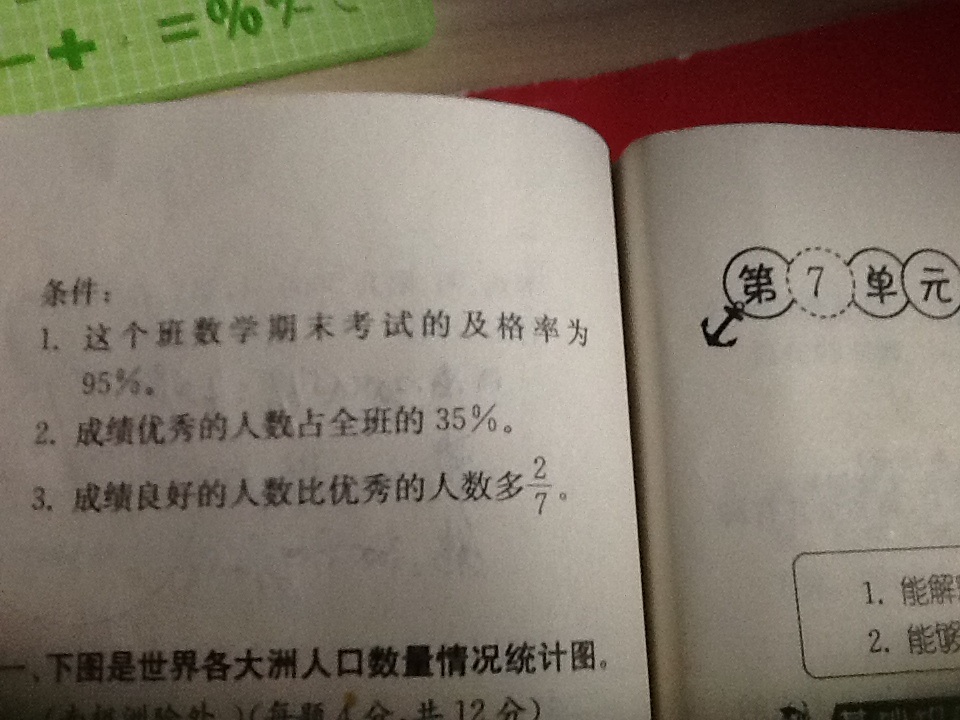 - + = %
条件:
1. 这个班数学期末考试的及格率为
95%。
2. 成绩优秀的人数占全班的 35%。
3. 成绩良好的人数比优秀的人数多2/7。
一、下图是世界各大洲人口数量情况统计图。
)(每题 4 分,共 12 分)
第 7 单元
1. 能解
2. 能够